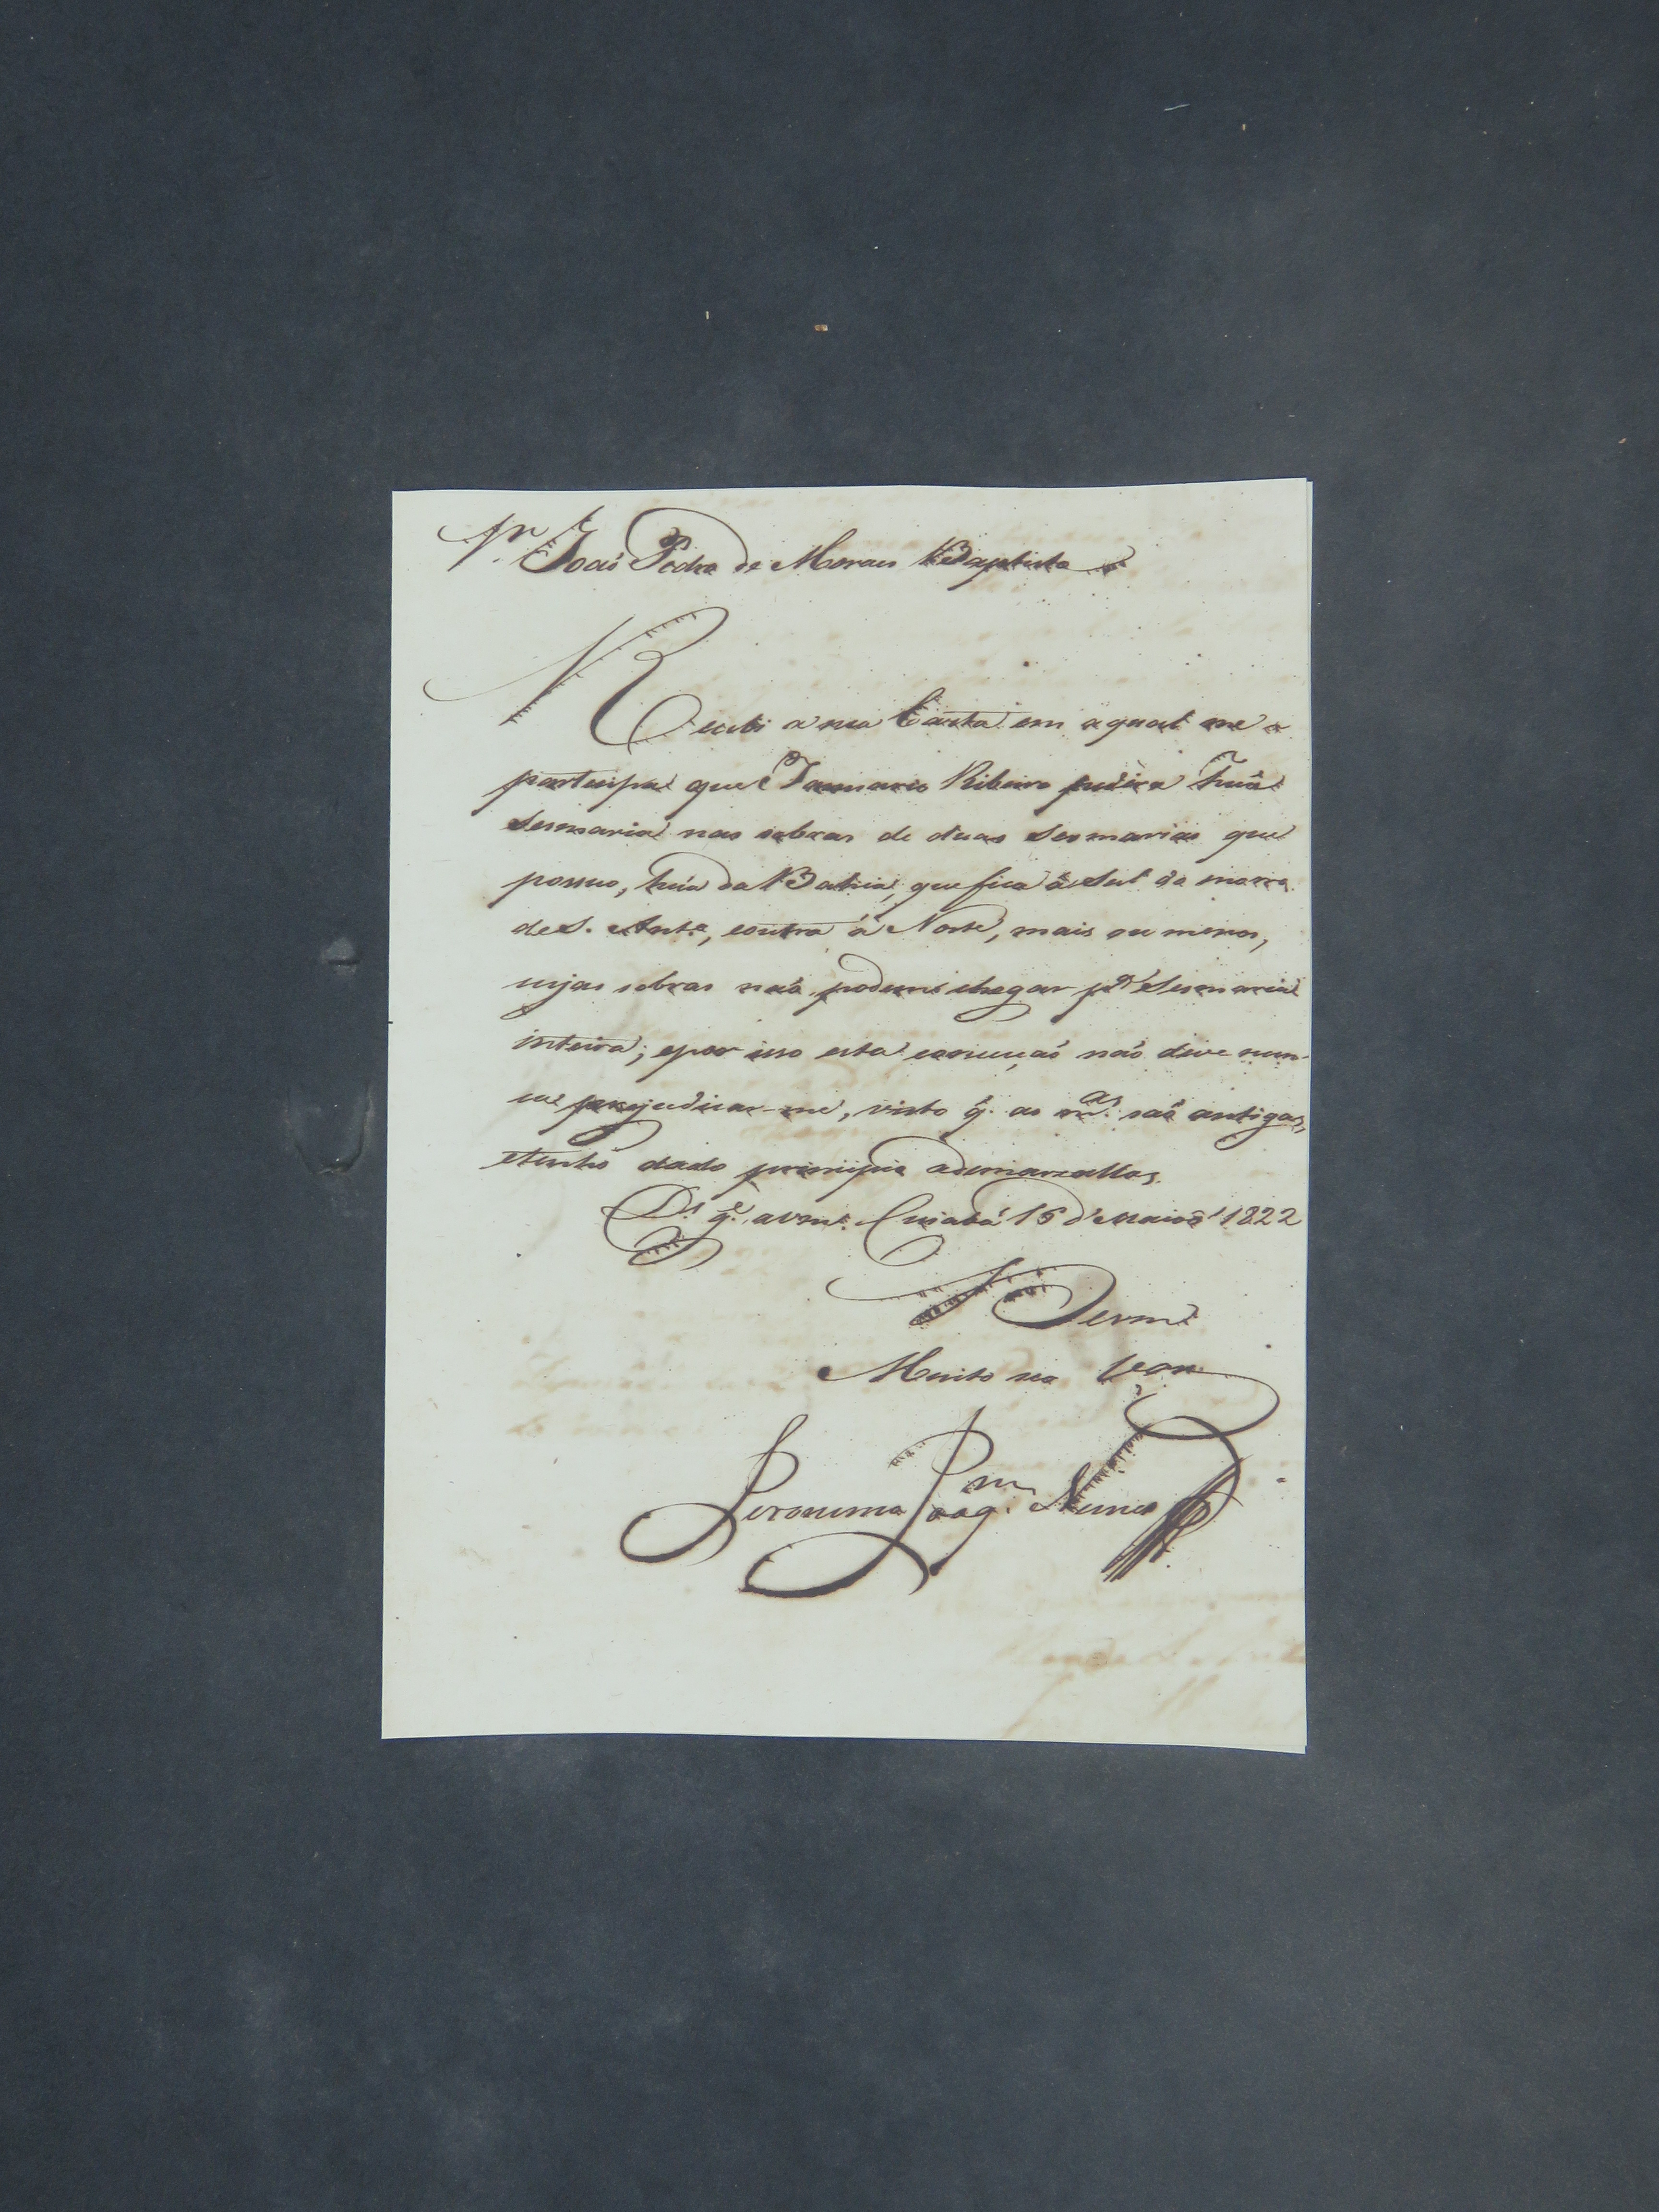 Sr. João Pedro de Moraes Baptista
Recebi a sua Carta em a qual me
participa que Januario Ribeiro pedira huã
Sesmaria nas sobras de duas Sesmarias que
possuo, huã da Bahia, que fica á Sul do morro
de S. Ant.o, eoutra á Norte, mais ou menos,
cujas sobras naó podem chegar p.a Sesmaria
inteira; epor isso esta concuçaó naó deve nun-
ca prejudicar-me, visto q. as m.as saó antigas,
etenho dado principio ademarcallas.
D.s g.e avm.e Cuiabá 15 de Maio d' 1822
Devm.e
Muito seo Ven.
Jeronimo Joaq.m Nunes